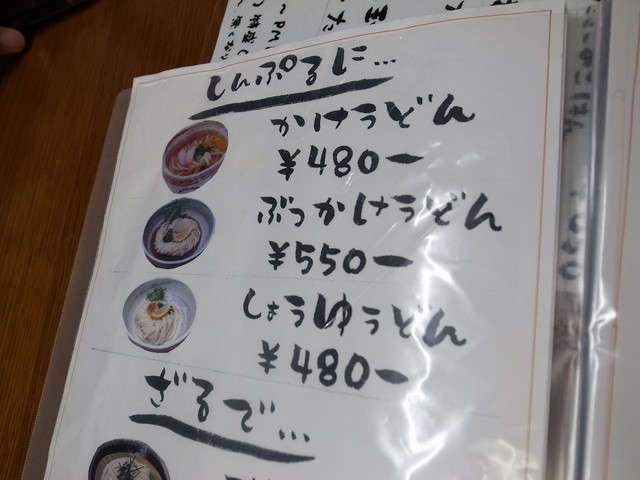 しんぷるに…
かけうどん
¥480ー
ぶっかけうどん
¥550ー
しょうゆうどん
¥480ー
ざるで…